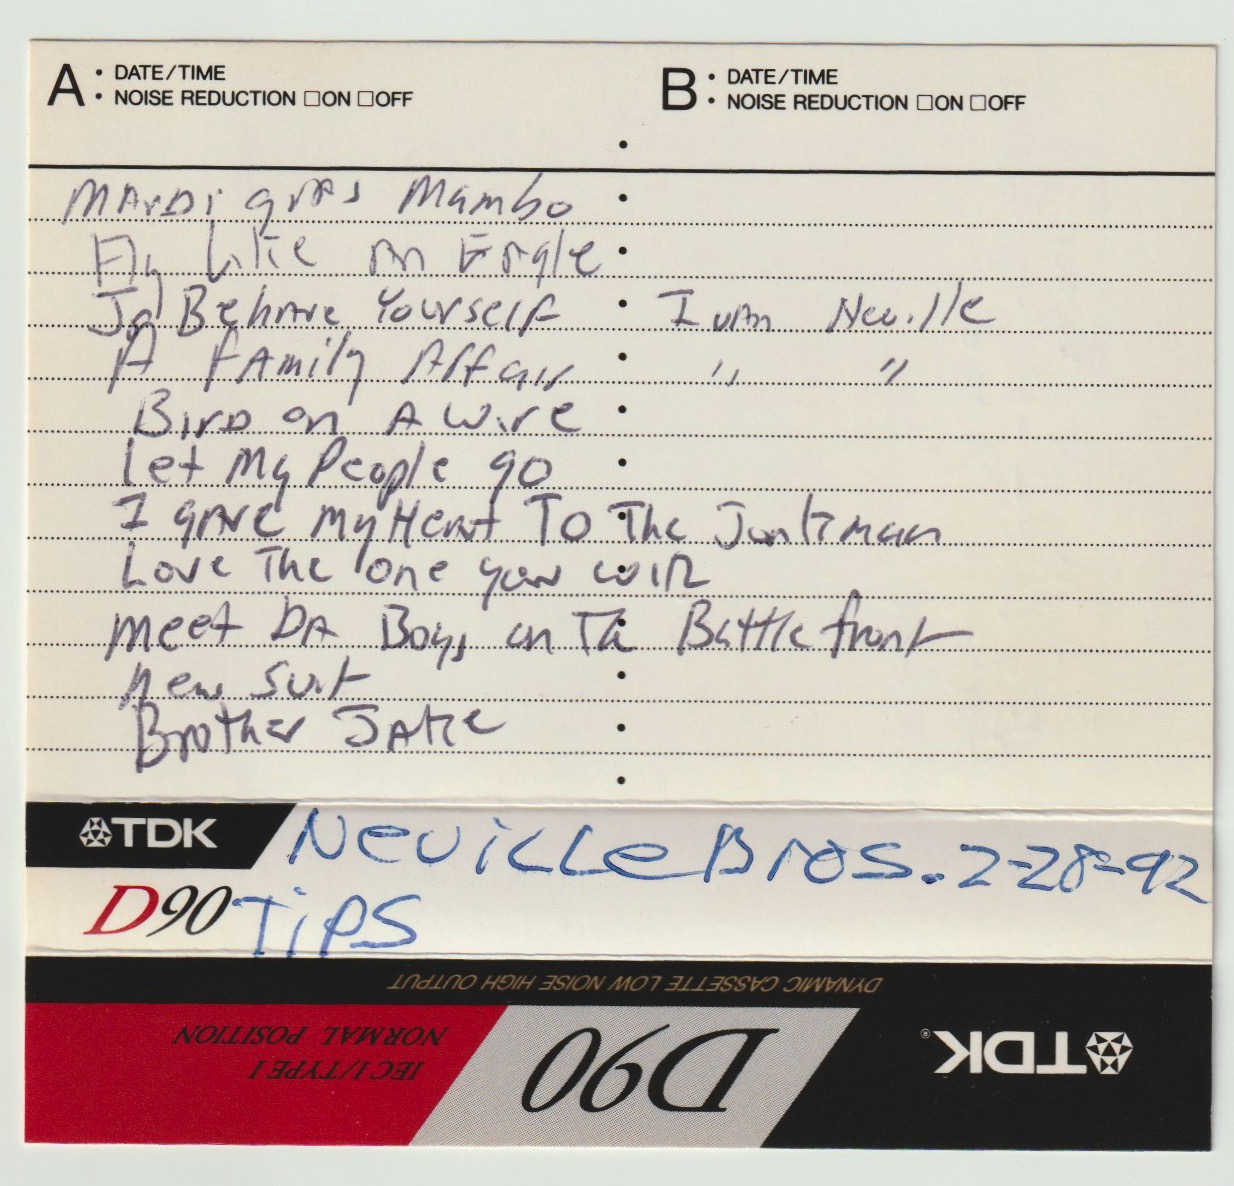 A • DATE/TIME
• NOISE REDUCTION □ON □OFF
B • DATE/TIME
• NOISE REDUCTION □ON □OFF
Mardi gras Mambo
Fly Like An Eagle
Behave Yourself Ivan Neville
A Family Affair " "
Bird on A Wire
Let My People go
I gave My Heart To The Junkman
Love The one your with
meet DA Boys on The Battlefront
new suit
Brother Jake
TDK Neville Bros. 2-28-92
D90 TiPS
DYNAMIC CASSETTE LOW NOISE HIGH OUTPUT
TDK®
D90
IEC I/TYPE I
NORMAL POSITION